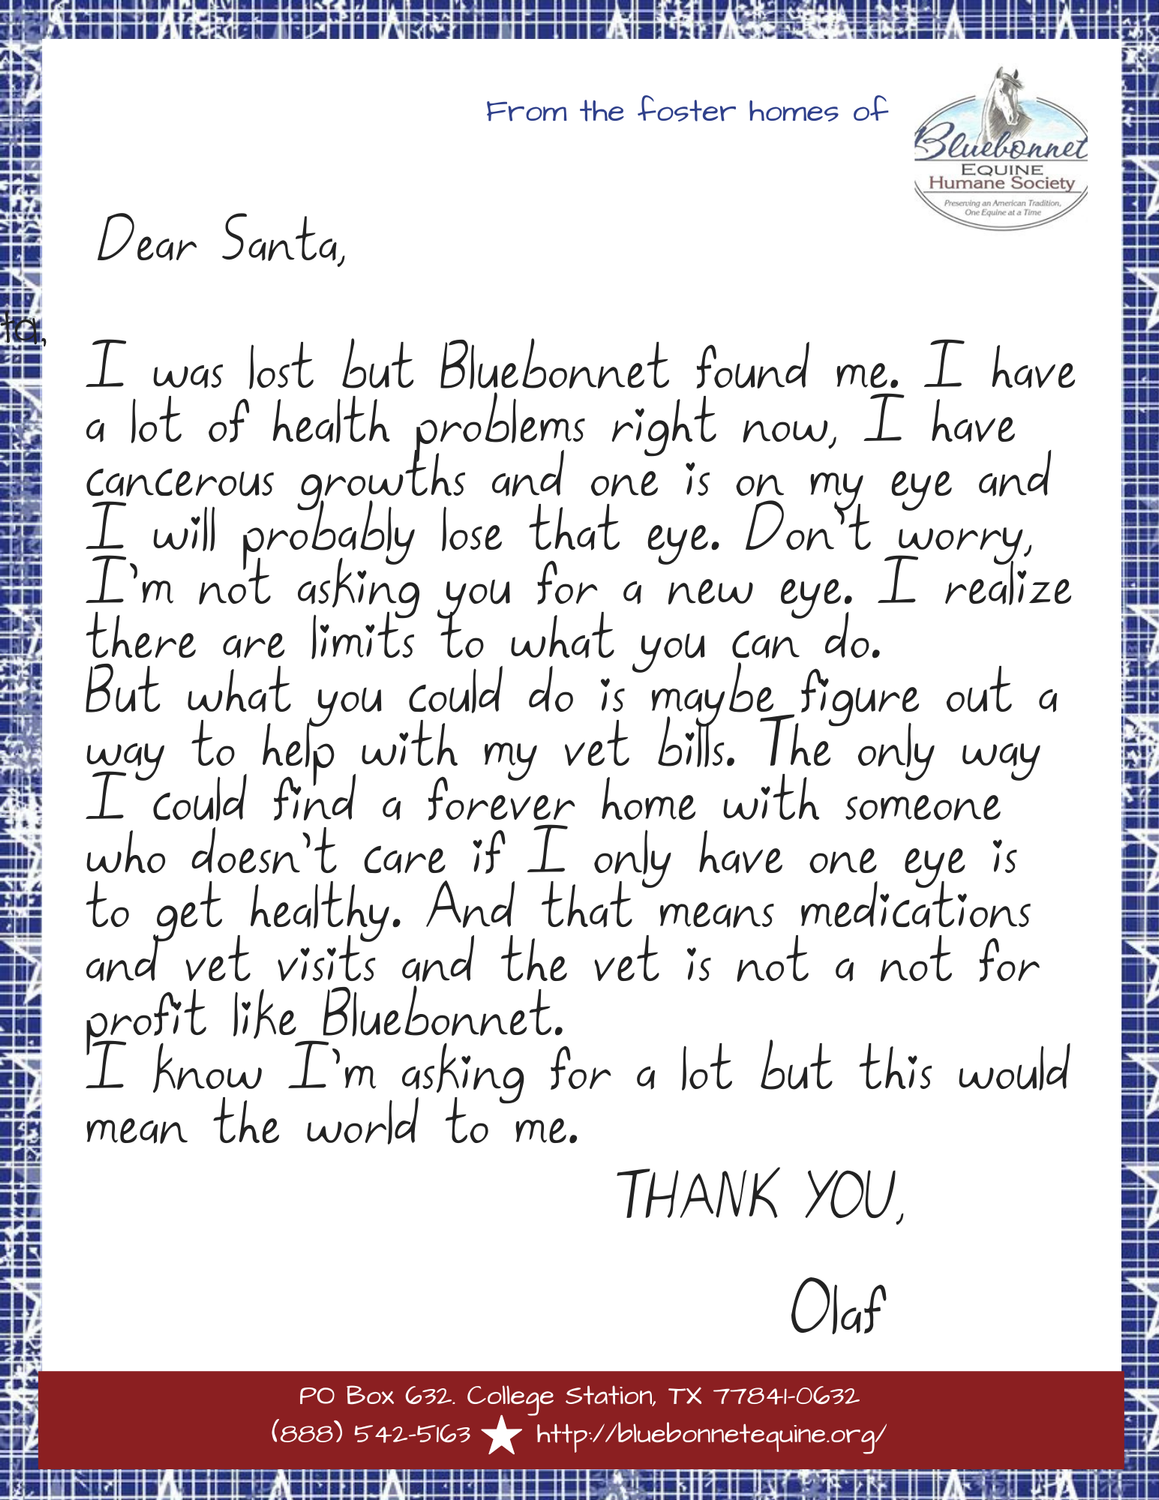 From the foster homes of
Bluebonnet
EQUINE
Humane Society
Preserving an American Tradition,
One Equine at a Time
Dear Santa,
ta,
I was lost but Bluebonnet found me. I have
a lot of health problems right now, I have
cancerous growths and one is on my eye and
I will probably lose that eye. Don't worry,
I'm not asking you for a new eye. I realize
there are limits to what you can do.
But what you could do is maybe figure out a
way to help with my vet bills. The only way
I could find a forever home with someone
who doesn't care if I only have one eye is
to get healthy. And that means medications
and vet visits and the vet is not a not for
profit like Bluebonnet.
I know I'm asking for a lot but this would
mean the world to me.
THANK YOU,
Olaf
PO Box 632. College Station, TX 77841-0632
(888) 542-5163 http://bluebonnetequine.org/